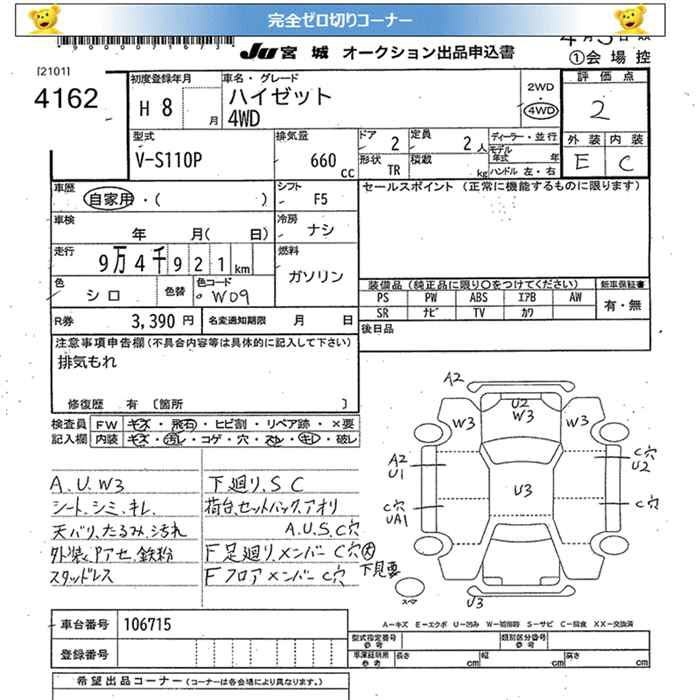 完全ゼロ切りコーナー
JU宮城 オークション出品申込書
①会場控
[2101]
4162
初度登録年月
H 8 月
車名・グレード
ハイゼット
4WD
2WD
・
4WD
評価点
2
外装 内装
E C
型式
V-S110P
排気量
660 cc
ドア 2
形状 TR
定員 2 人
積載 kg
ディーラー・並行
モデル年式 年
ハンドル 左・右
車歴
自家用・( )
シフト F5
セールスポイント (正常に機能するものに限ります)
車検
年 月( 日)
冷房 ナシ
走行
9万4千921km
燃料
ガソリン
色 シロ
色替
色コード W09
装備品 (純正品に限り○をつけてください)
新車保証書
PS PW ABS エアB AW
SR ナビ TV カワ
有・無
R券 3,390円
名変通知期限 月 日
後日品
注意事項申告欄(不具合内容等は具体的に記入して下さい)
排気もれ
修復歴 有 [箇所 ]
検査員 FW キズ・飛石・ヒビ割・リペア跡・×要
記入欄 内装 キズ・汚レ・コゲ・穴・スレ・キレ・破レ
A.U.W3
シート、シミ、キレ、
天バリ、たるみ、汚れ
外装、Pアセ、鉄粉
スタッドレス
下廻り、SC
荷台、セットバック、アオリ
A.U.S.C穴
F足廻り、メンバーC穴大
下見要
FフロアメンバーC穴
A2
U2
W3
W3
W3
A2
U1
C穴
U2
U3
C穴
UA1
C穴
スペア
U3
A-キズ E-エクボ U-凹み W-補修跡 S-サビ C-腐食 XX-交換済
車台番号 106715
登録番号
型式指定番号 参考
類別区分番号 参考
車庫証明用 参考 長さ cm 幅 cm 高さ cm
希望出品コーナー (コーナーは各会場により異なります。)